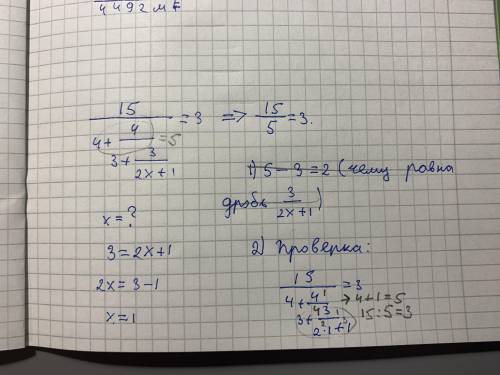 4492 м
15 / (4 + 4 / (3 + 3 / (2x+1))) = 3 => 15/5 = 3.
= 5
x = ?
3 = 2x+1
2x = 3-1
x = 1
1) 5-3=2 (чему равна
дробь 3/(2x+1))
2) Проверка:
15 / (4 + 4 / (3 + 3 / (2·1+1))) = 3
1
→ 4+1=5
15:5=3